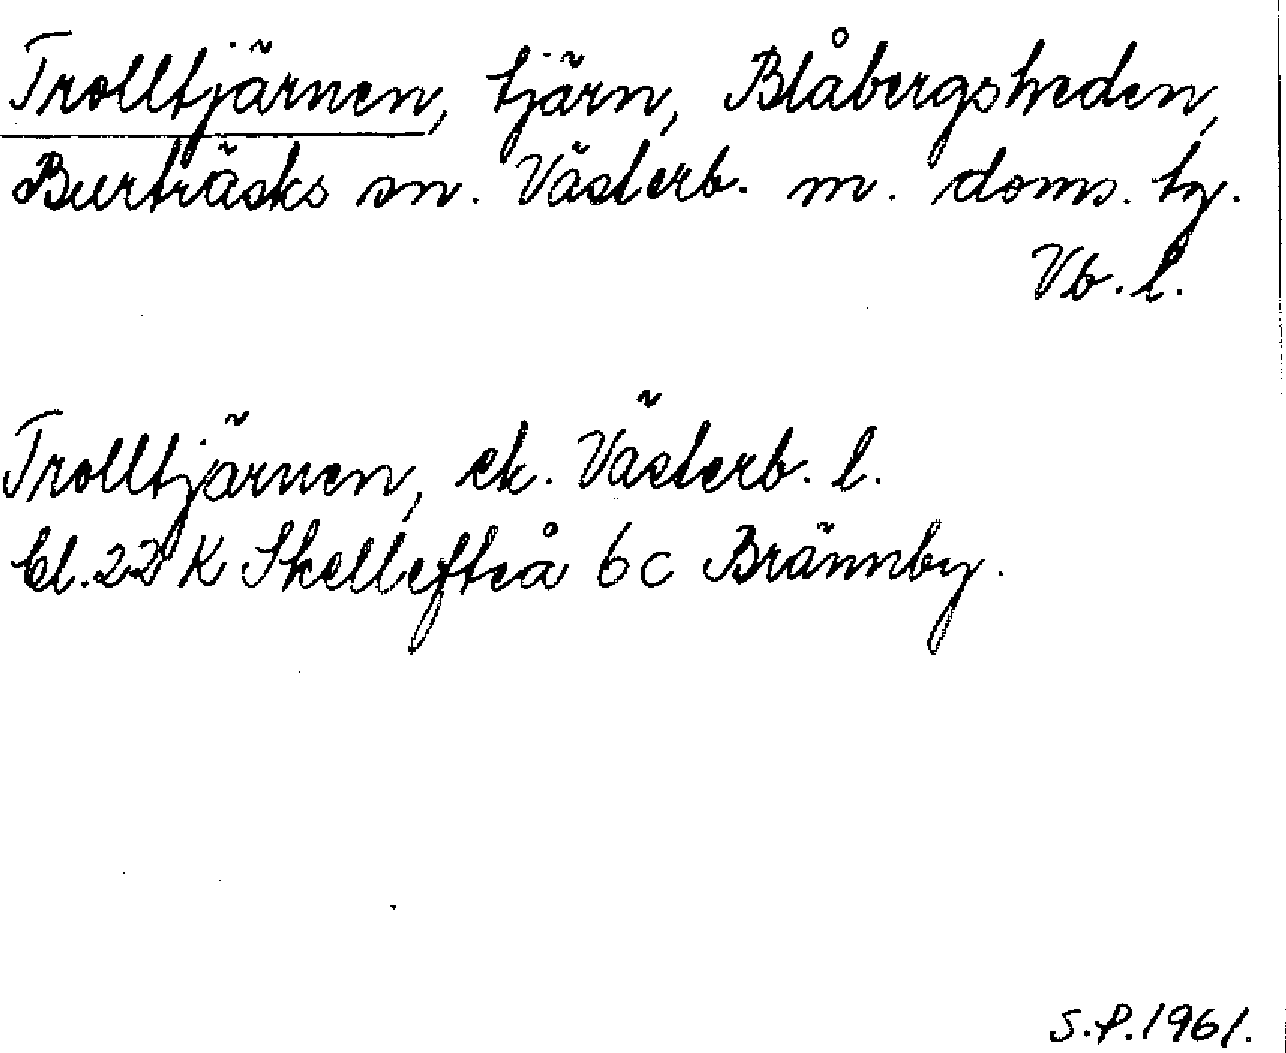 Trolltjärnen, tjärn, Blåbergsheden,
Burträsks sn. Västerb. m. doms. tg.
Vb. l.
Trolltjärnen, ek. Västerb. l.
bl. 22 K Skellefteå 6 c Brännby.
S.P. 1961.